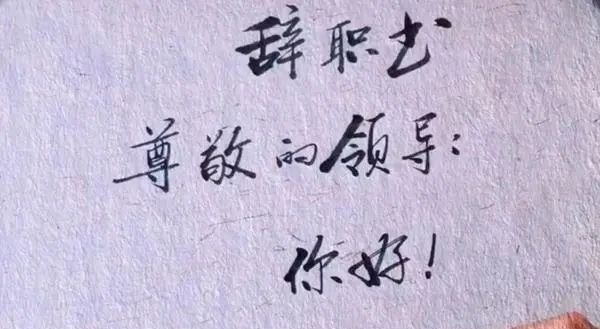 辞职书
尊敬的领导：
你好！